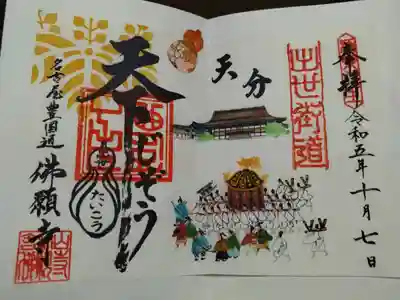 奉拝
令和五年十月七日
出世街道
天分
天下じぞう
たいこう
名古屋豊国通
佛願寺